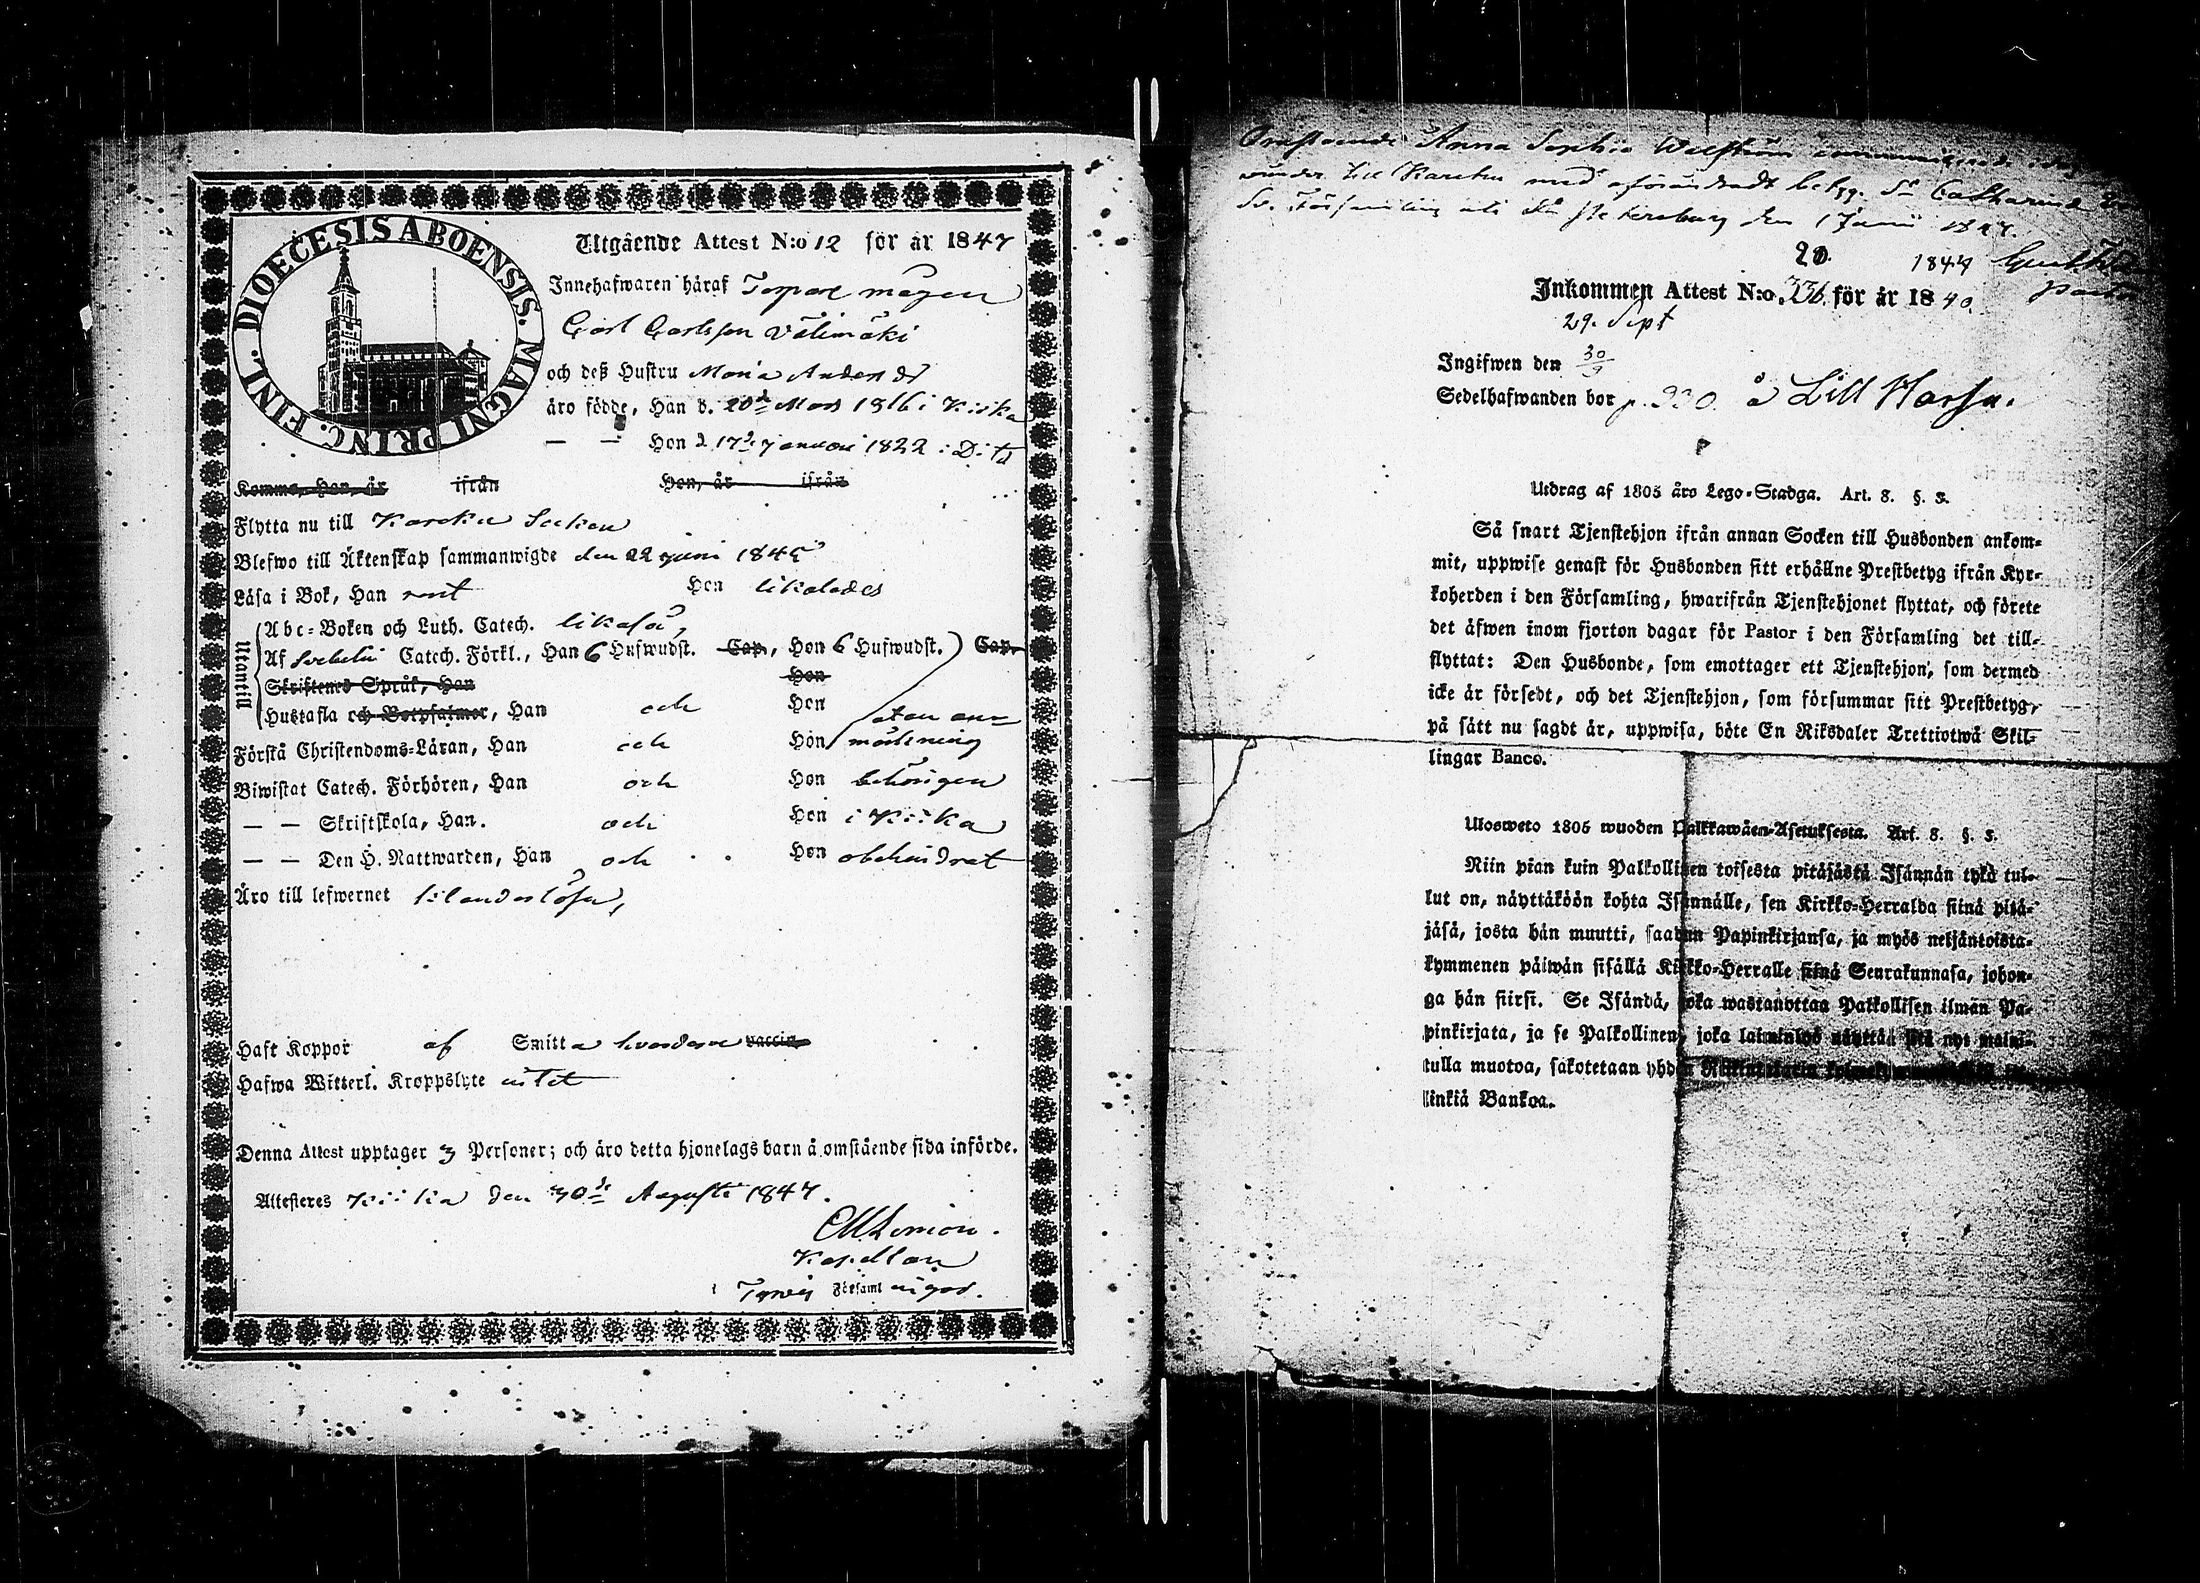 DIOECESIS ABOENSIS. MAGNI PRINC. FINL.
Utgående Attest N:o 12 för år 1847
Innehafwaren häraf Torpare mågen
Carl Carlsson Välimäki
och deß Hustru Maria Anders dr
äro födde, Han d. 20de Mars 1816 i Kiika
— — Hon d 17de Januari 1822 i Dito
Komne, Han, år ifrån Hon, år ifrån
Flytta nu till Karcku Socken
Blefwo till Äktenskap sammanwigde den 22 Juni 1845
Läsa i Bok, Han rent Hon likaledes
Utantill
Abc-Boken och Luth. Catech. likaså,
Af Svebelii Catech. Förkl., Han 6 Hufwudst. Cap., Hon 6 Hufwudst. Cap.
Skriftenes Språk, Han Hon
Hustafla och Botpsalmer, Han och Hon utan an-
Förstå Christendoms-Läran, Han och Hon märkning
Biwistat Catech. Förhören, Han och Hon behörigen
— — Skriftskola, Han. och Hon i Kiika
— — Den H. Nattwarden, Han och Hon obehindrat
Äro till lefwernet
Haft Koppor af Smitta hvardera vaccin
Hafwa Witterl. Kroppslyte intet
Denna Attest upptager 3 Personer; och äro detta hjonelags barn å omstående sida införde.
Attesteres Kiika den 30de Augusti 1847.
Kapellan
i Tyrvis Församl
Anna Sophia
till Karcku med oförändradt betyg. Sta Catharina
Sv. Församling uti St. Petersburg den 1 Junii 1847.
20. 1847
Inkommen Attest N:o 336. för år 1840.
29. Sept
Ingifwen den 30/9
Sedelhafwanden bor p. 330. å Lill Harsu.
Utdrag af 1805 års Lego-Stadga. Art. 8. §. 5.
Så snart Tjenstehjon ifrån annan Socken till Husbonden ankom-
mit, uppwise genast för Husbonden sitt erhållne Prestbetyg ifrån Kyr-
koherden i den Församling, hwarifrån Tjenstehjonet flyttat, och förete
det äfwen inom fjorton dagar för Pastor i den Församling det till-
flyttat: Den Husbonde, som emottager ett Tjenstehjon, som dermed
icke är försedt, och det Tjenstehjon, som försummar sitt Prestbetyg,
på sätt nu sagdt är, uppwisa, böte En Riksdaler Trettiotwå Skil-
lingar Banco.
Ulosweto 1805 wuoden Palkkawäen-Asetuksesta. Art. 8. §. 5.
Niin pian kuin Palkollinen toisesta pitäjästä Isännän tykö tul-
lut on, näyttäköön kohta Isännälle, sen Kirkko-Herralda siinä pitä-
jäsä, josta hän muutti, saadun Papinkirjansa, ja myös neljäntoista-
kymmenen päiwän sisällä Kirkko-Herralle siinä Seurakunnasa, johon-
ga hän siirsi. Se Isändä, joka wastanottaa Palkollisen ilman Pa-
pinkirjata, ja se Palkollinen, joka laiminlyö näyttää sitä nyt maini-
tulla muotoa, sakotetaan yhden
linkiä Bankoa.